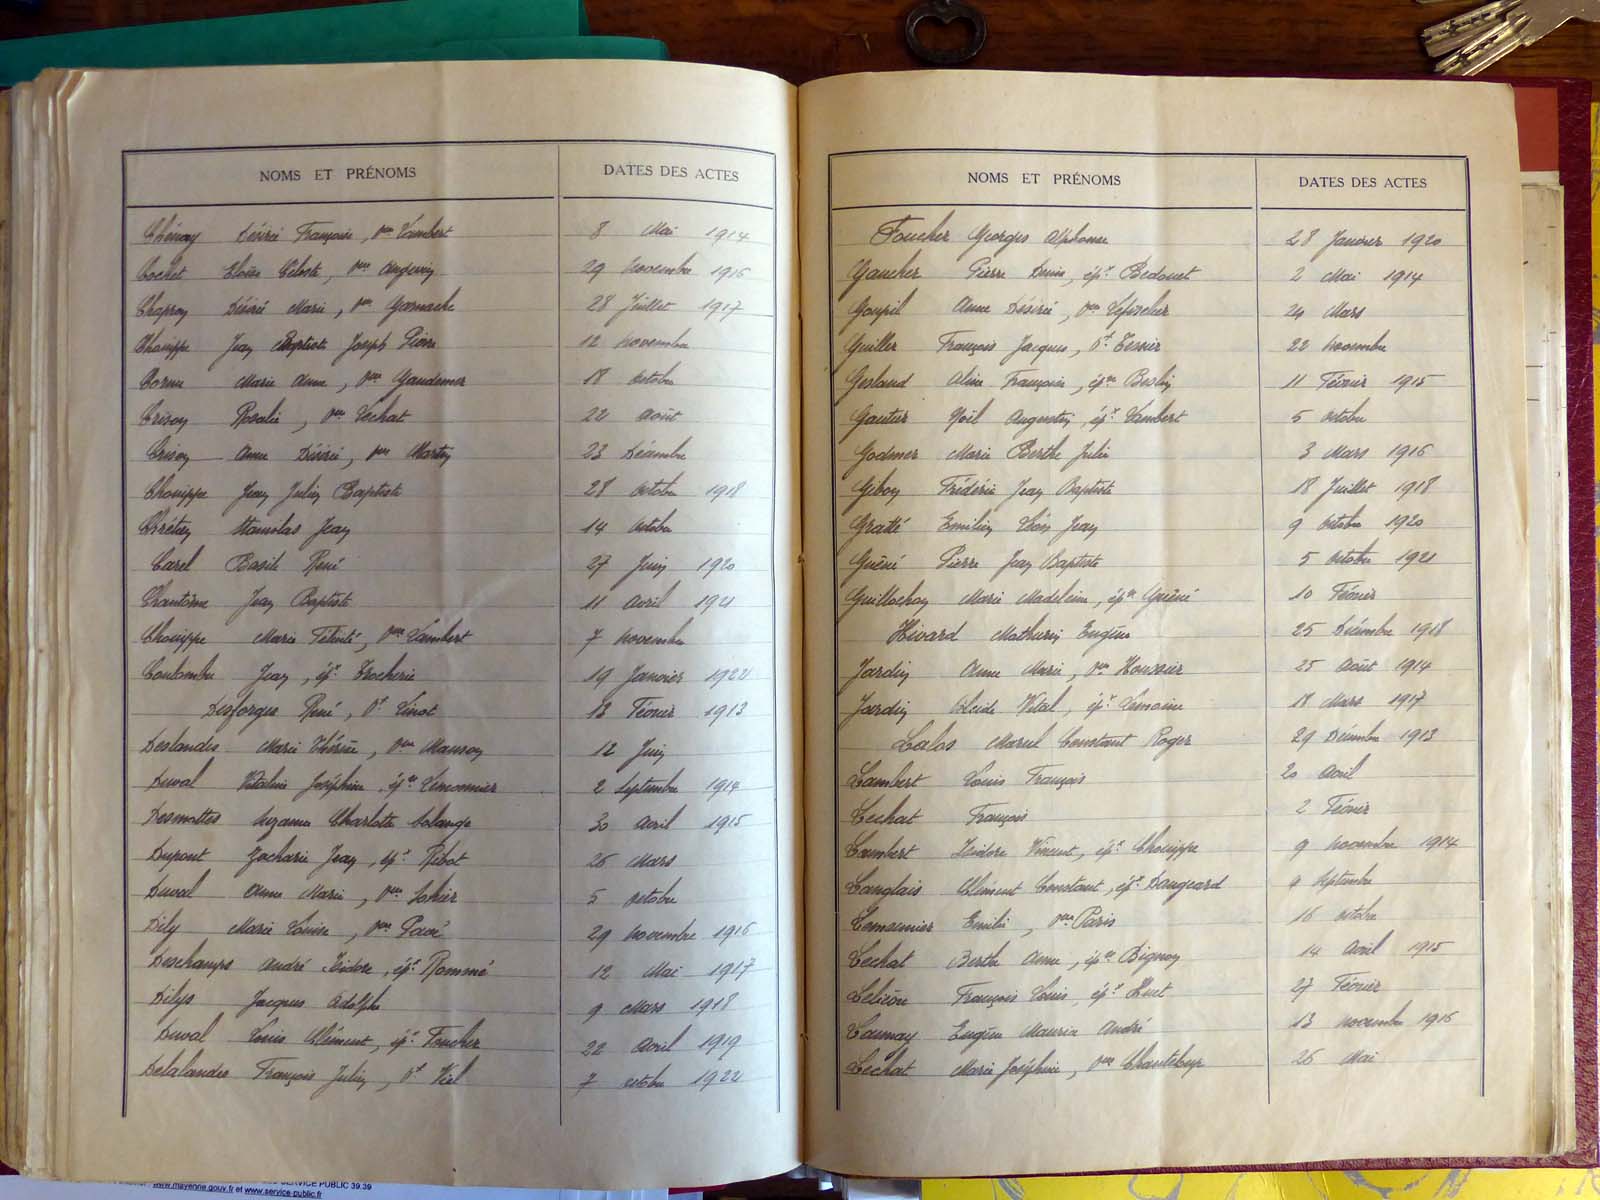 NOMS ET PRÉNOMS
DATES DES ACTES
Chénay Désirée Françoise, vve Lambert 8 Mai 1914
Cochet Eloïse Céleste, vve 29 novembre 1916
Chapron Désirée Marie, vve Gamache 28 Juillet 1917
Chouippe Jean Baptiste Joseph Pierre 12 novembre
Cornu Marie Anne, vve Gaudemer 18 octobre
Crison Rosalie, vve Lechat 22 août
Crison Anne Désirée, vve Martin 23 Décembre
Chouippe Jean Julien Baptiste 28 octobre 1918
Chrétien Stanislas Jean 14 octobre
Carel Basile René 27 Juin 1920
Chantôme Jean Baptiste 11 avril 1921
Chouippe Marie Félicité, vve Lambert 7 novembre
Coulombe Jean, épx Trocherie 19 Janvier 1922
Desforges René, vf Linot 13 Février 1913
Deslandes Marie Thérèse, vve Manson 12 Juin
Duval Vitaline Joséphine, épse Lemonnier 2 Septembre 1914
Desmottes Suzanne Charlotte Solange 30 avril 1915
Dupont Zacharie Jean, épx Ribot 26 Mars
Duval Anne Marie, vve Sohier 5 octobre
Dily Marie Louise, vve 29 novembre 1916
Deschamps André Isidore, épx Rommé 12 Mai 1917
Dilys Jacques Adolphe 9 Mars 1918
Duval Louis Clément, épx Foucher 22 avril 1919
Delalandes François Julien, vf Viel 7 octobre 1922
NOMS ET PRÉNOMS
DATES DES ACTES
Foucher Georges Alphonse 28 Janvier 1920
Gaucher Pierre Denis, épx Bedouet 2 Mai 1914
Goupil Anne Désirée, vve 24 Mars
Guiller François Jacques, vf Tessier 22 novembre
Gesland Aline Françoise, épse Beslin 11 Février 1915
Gautier Noël Augustin, épx Lambert 5 octobre
Godmer Marie Berthe Julie 3 Mars 1916
Gibon Frédéric Jean Baptiste 18 Juillet 1918
Gratté Emilien Léon Jean 9 octobre 1920
Guéné Pierre Jean Baptiste 5 octobre 1921
Guillochon Marie Madeleine, épse Guéné 10 Février
Hivard Mathurin Eugène 25 Décembre 1918
Jardin Anne Marie, vve Houssier 25 août 1914
Jardin Alcide Vital, épx Lemoine 18 Mars 1917
Lalos Marcel Constant Roger 29 Décembre 1913
Lambert Louis François 20 avril
Lechat François 2 Février
Lambert Isidore Vincent, épx Chouippe 9 novembre 1914
Langlais Clément Constant, épx Daugeard 9 Septembre
Lemonnier Emilie, vve Paris 16 octobre
Lechat Berthe Anne, épse Bignon 14 avril 1915
François Louis, épx Huet 27 Février
Launay Eugène Maurice André 13 novembre 1916
Lechat Marie Joséphine, vve 26 Mai
SERVICE PUBLIC 39.39
www.mayenne.gouv.fr et www.service-public.fr